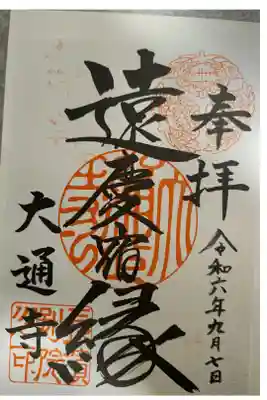 奉拝
令和六年九月七日
遠慶宿縁
大通寺